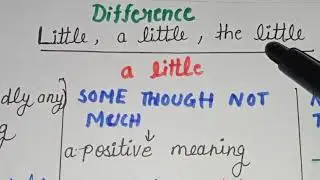 Difference
Little, a little, the little
a little
dly any)
SOME THOUGH NOT
MUCH
a positive meaning